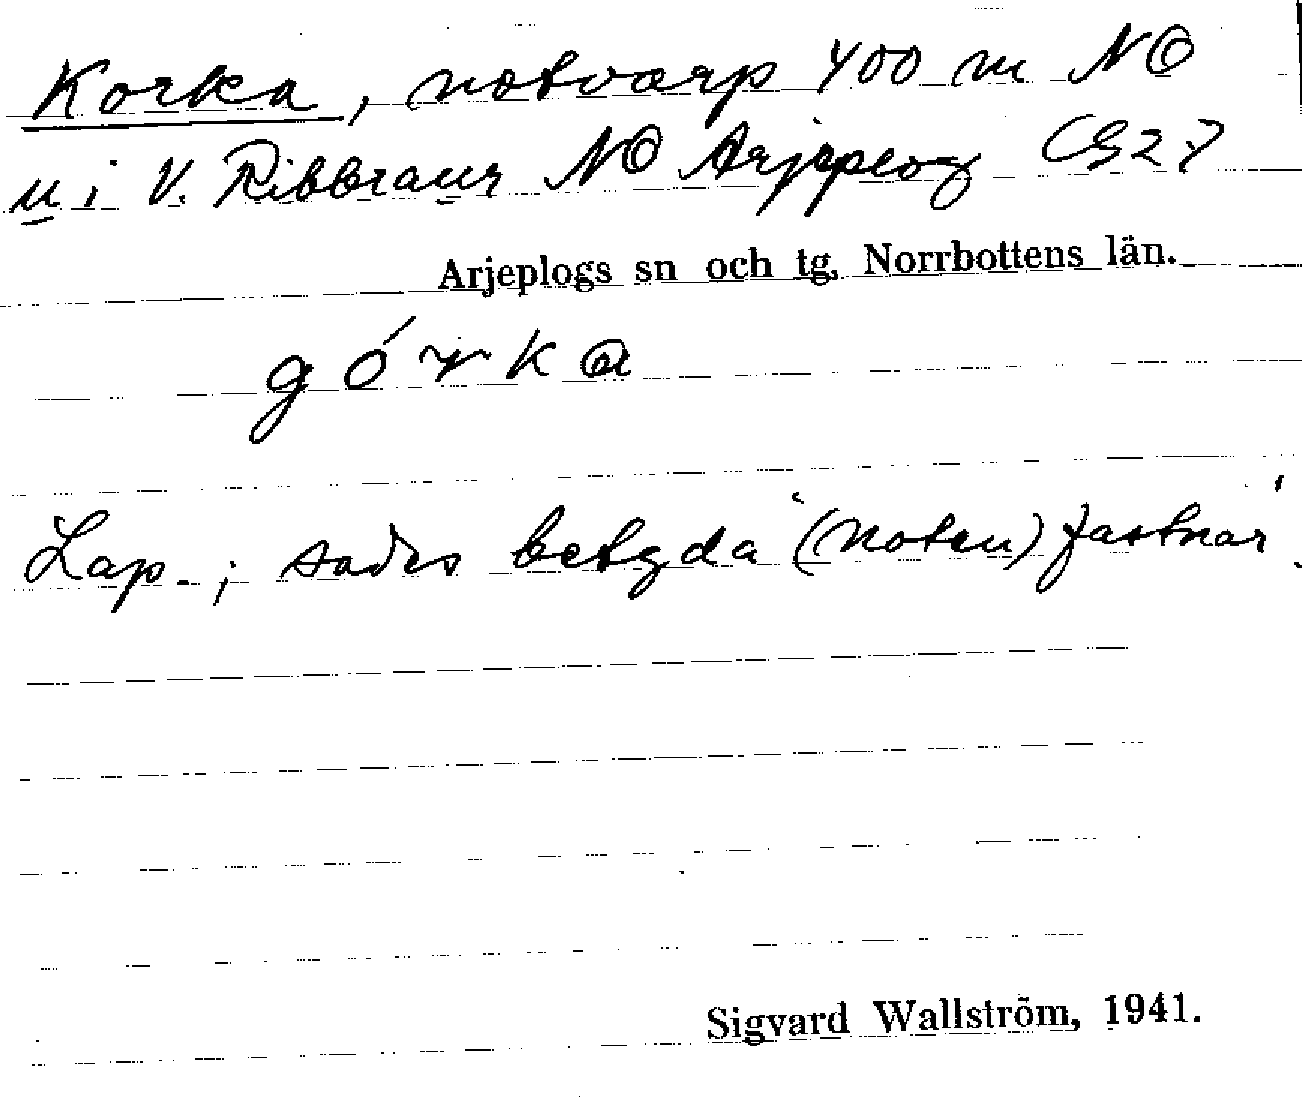 Korka, notvarp 400 m NO
u i V. Ribbraur NO Arjeplog CG27
Arjeplogs sn och tg, Norrbottens län.
górka
Lap.; sades betyda '(noten) fastnar'.
Sigvard Wallström, 1941.